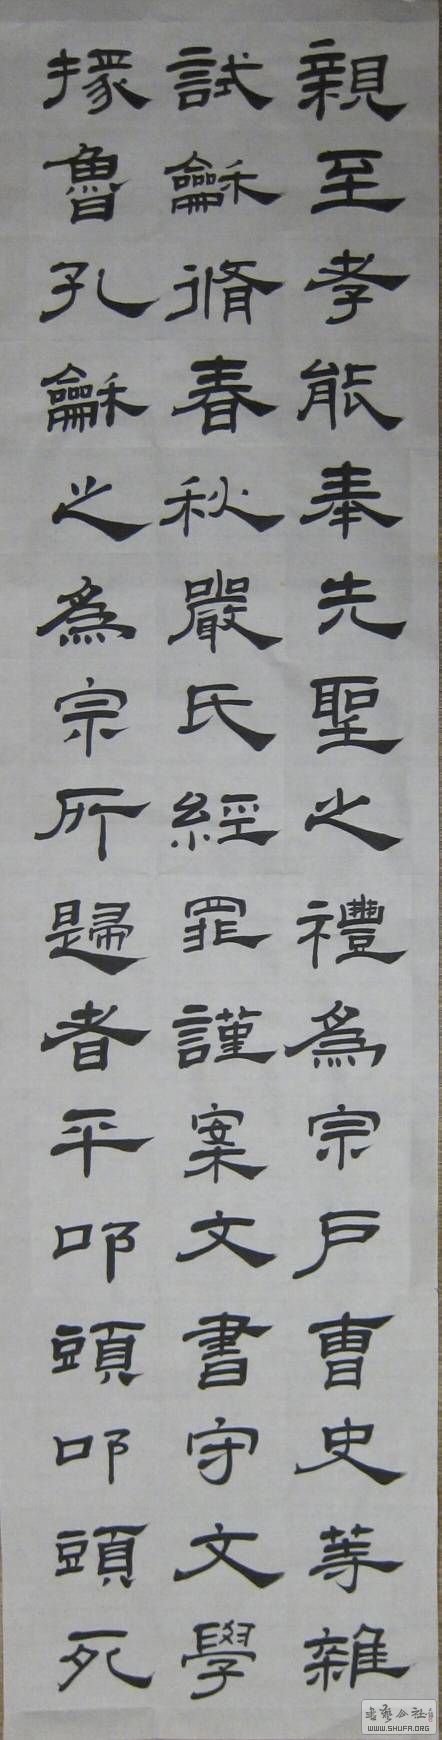 親至孝能奉先聖之禮為宗戶曹史等雜
試龢脩春秋嚴氏經罪謹案文書守文學
掾魯孔龢之為宗所歸者平叩頭叩頭死
书艺公社
WWW.SHUFA.ORG